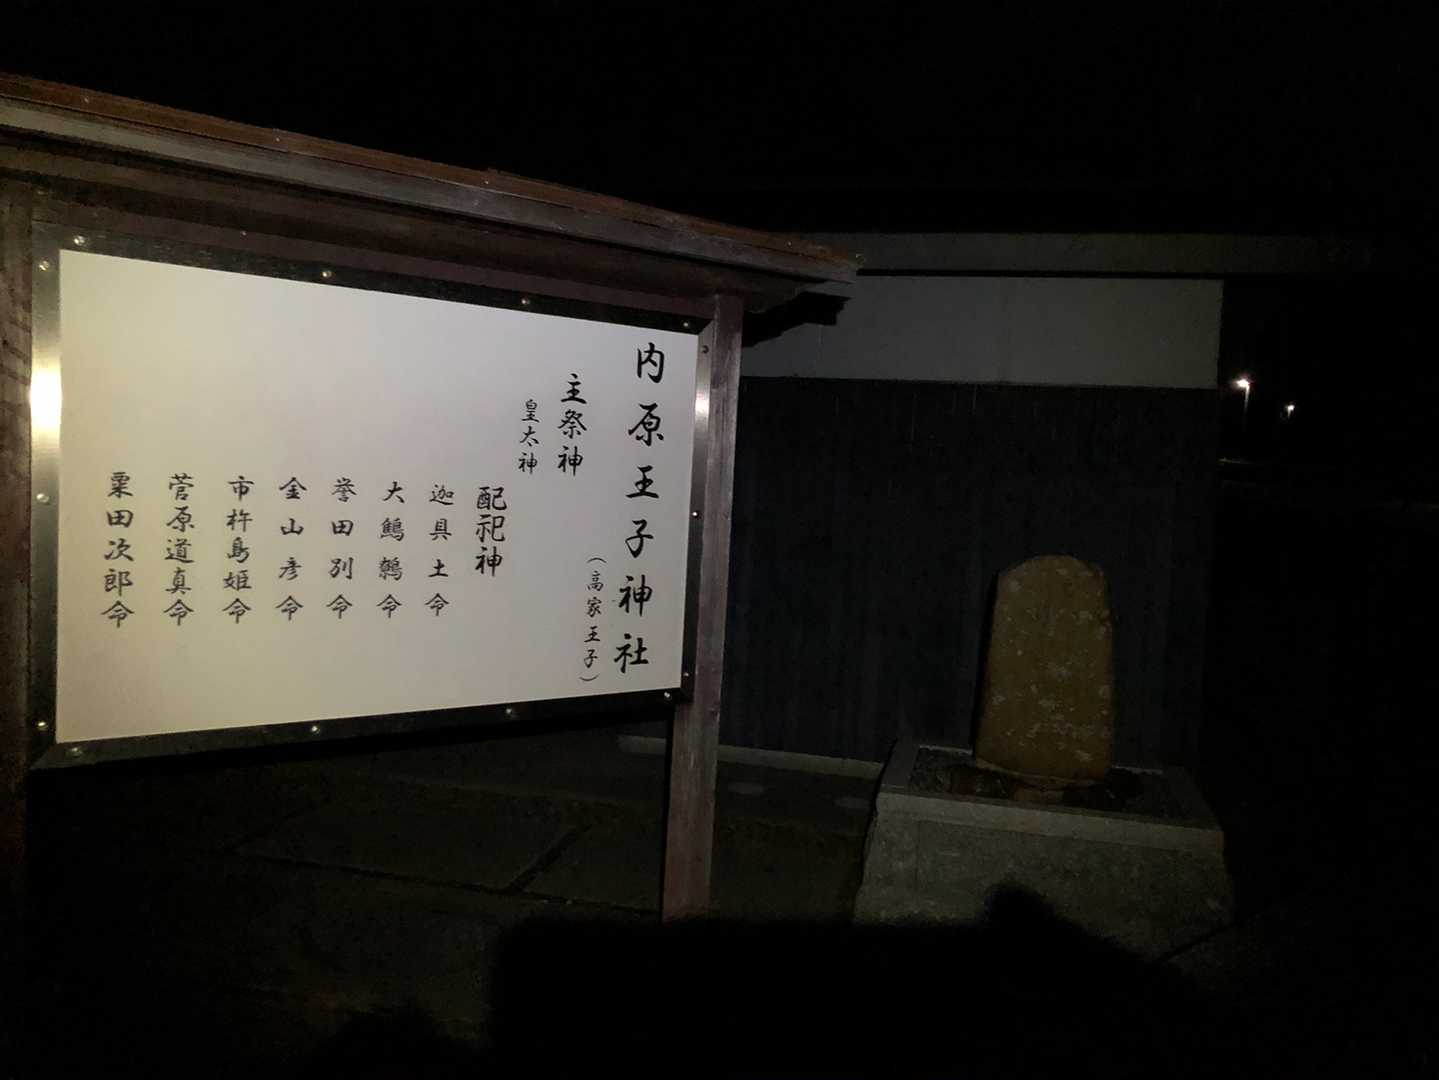 内原王子神社
（高家王子）
主祭神
皇太神
配祀神
迦具土命
大鷦鷯命
誉田別命
金山彦命
市杵島姫命
菅原道真命
粟田次郎命